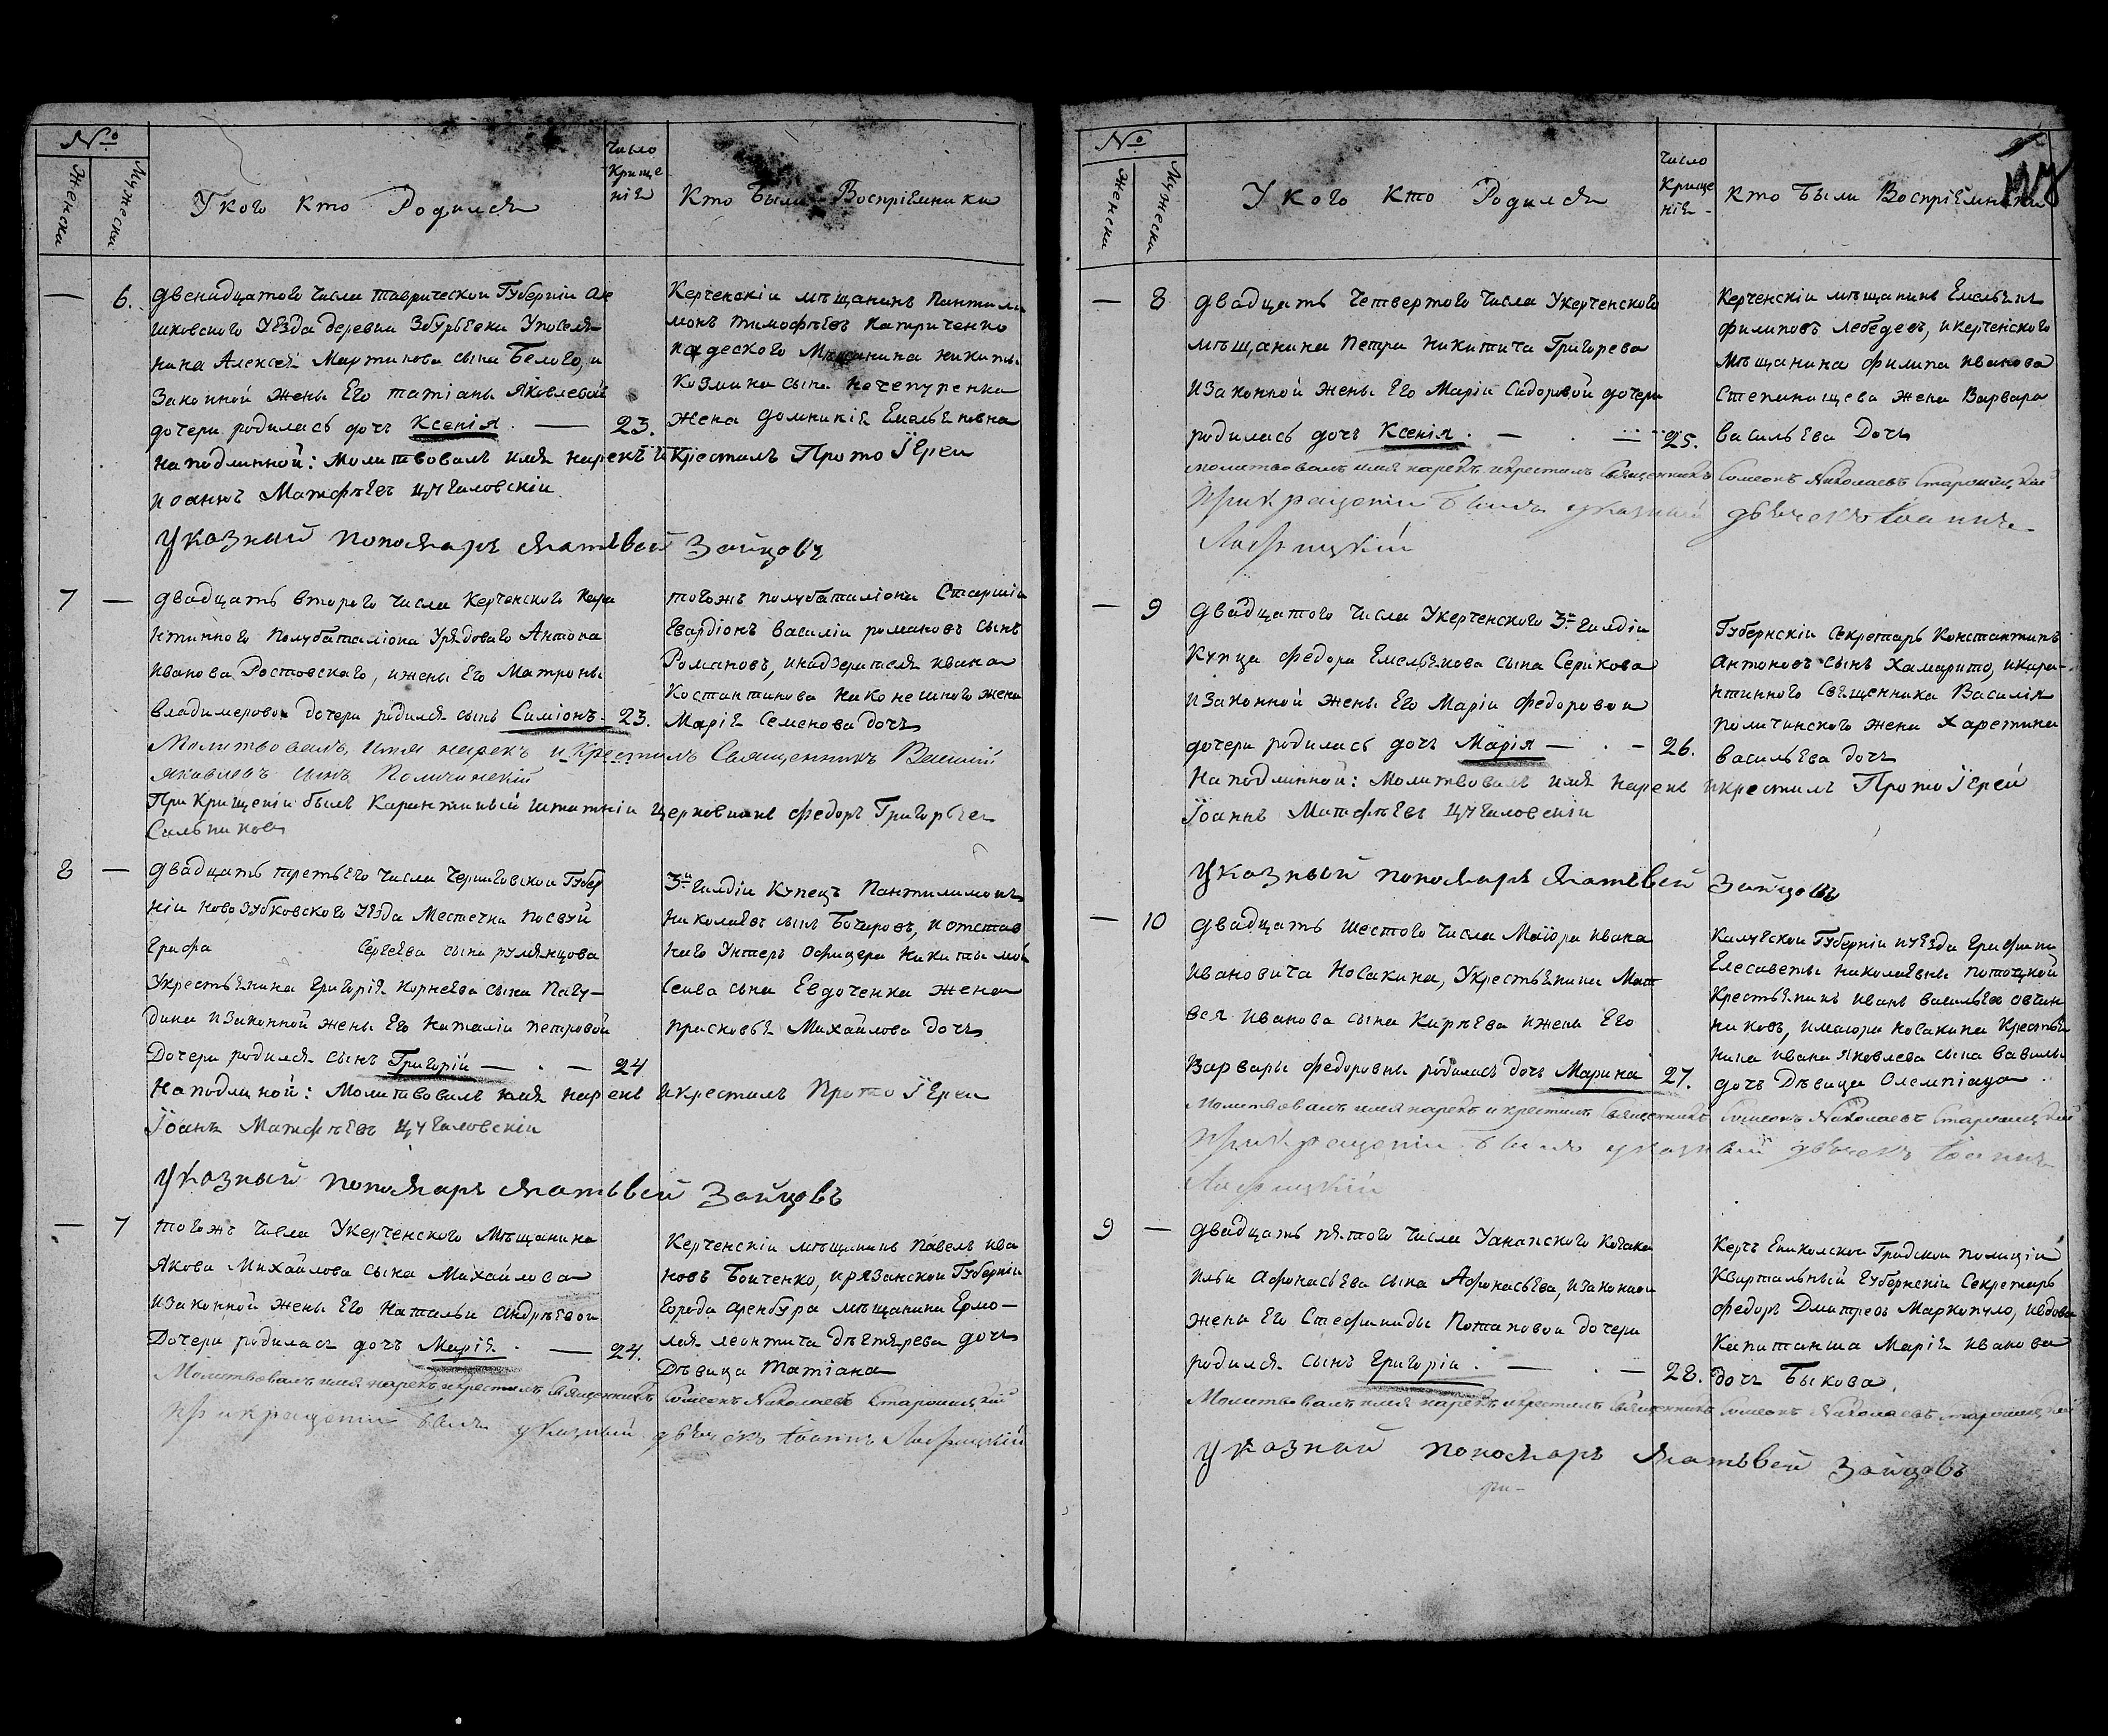 №
Женска
Мужеска
У кого кто Родился
Число Креще нія
Кто были Воспріемники
— 6. двенадцатого числа таврической Губерніи але
шковского Уезда деревни Збурьевки У поселя
нина Алексея Мартинова сына Белого, и
Законной жены Его татіаны Яковлевой
дочери родилась дочь Ксенія. — 23.
Керченскіи мѣщанинъ Пантили
монъ тимофѣевъ Катриченко
Мѣщанина никиты
Козмина сына нечепуренка
жена домникія Емельяновна
на подлинной: молитвовалъ имя нарекъ и крестилъ Прото Іереи
иоаннъ Матфѣевъ
Указный пономарь Матьвей Зайцовъ
7 — двадцать второго числа Керченского Кара
нтинного полубаталіона Урядового Антона
иванова Ростовского, и жены Его Матроны
владимеровой дочери родился сынъ Симіонъ 23.
тогожъ полубаталіона Старшіи
Гвардіонъ василіи романовъ сынъ
Романовъ, и надзерателя ивана
Костантинова Наконешного жена
Марія Семенова дочь
Молитвовалъ, имя нарекъ и крестилъ Священникъ Василій
Яковлевъ сынъ Поличинскій
При крищеніи былъ Карантинный штатніи церковникъ федоръ Григорьев
Сальников
8 — двадцать третьего числа Черниговской Губер
ніи новозубковского Уезда Местечка посвуй
Графа Сергеева сына румянцова
У крестьянина григорія корнеева сына Пагу—
дина и законной жены Его Наталіи петровой
Дочери родился сынъ Григоріи — . — 24
3й гилдіи Купецъ Пантилимонъ
николаевъ сынъ Бочаровъ, и отстав
ного Унтеръ офицера никиты мои
Сеива сына Евдоченка жена
прасковья Михайлова дочь
На подлиной: Молитвовалъ имя нарекъ и крестилъ Прото Іереи
Іоанъ Матфѣевъ
Указный пономарь Матьвей Зайцовъ
— 7 тогожъ числа У керченского Мѣщанина
Якова Михайлова сына Михайлова
и законной жены Его Натальи андрѣевои
Дочери родилась дочь Марія. — 24.
Керченскіи мѣщанинъ павелъ ива
новъ Бойченко, и рязанской Губерніи
города аренбура мѣщанина Ермо—
лая леонтича дѣгтярева дочь
Дѣвица Татіана
Молитвовалъ имя нарекъ и крестилъ Священникъ Симеонъ Николаевъ
При крещеніи былъ указный дьячекъ Іоаннъ
№
Женска
Мужеска
У кого кто Родился
Число Креще нія
Кто были Воспріемники
— 8 двадцать четвертого числа У керченского
мѣщанина петра никитича Григорева
и Законной жены Его Маріи Сидоровой дочери
родилась дочь Ксенія. — . — 25.
Керченскіи мѣщанинъ Емельянъ
филиповъ лебедевъ, и керченского
Мѣщанина филипа иванова
Степанищева жена Варвара
васильева Дочь
молитвовалъ имя нарекъ и крестилъ Священникъ Симеонъ Николаевъ
При крещеніи былъ указный дьячекъ Іоаннъ
— 9 двадцатого числа У керченского 3й гилдіи
Купца федора Емельянова сына Серикова
и законной жены Его Маріи федоровой
дочери родилась дочь Марія — . — 26.
Губернскіи Секретарь Константинъ
антоновъ сынъ Хамарито, и кара-
нтинного Священника Василія
поличинского жена Харетина
васильева дочь
На подлинной: Молитвовалъ имя нарекъ и крестилъ Прото Іереи
Іоаннъ Матфѣевъ
Указный пономарь Матьвей Зайцовъ
— 10 двадцать шестого числа Маіора ивана
ивановича Носакина, У крестьянина Мат
вея иванова сына Кирѣева и жены Его
Варвары федоровны родилась дочь Марина 27.
Калужской Губерніи и уезда Графини
Елесаветы николаевны потоцкой
Крестьянинъ иванъ васильев овчин
никовъ, и маіора носакина Крестья
нина ивана Яковлева сына вавилы
дочь Дѣвица Олемпіада
Молитвовалъ имя нарекъ и крестилъ Священникъ Симеонъ Николаевъ
При крещеніи былъ указный дьячекъ Іоаннъ
9 — двадцать пятого числа У анапского Козака
ильи афонасьева сына Афонасьева, и законной
жены Его Стефаниды Потаповой дочери
родился сынъ григоріи. — . — 28.
Керчъ Еникольской Градской полиціи
Квартальный губернскіи Секретарь
федоръ Дмитревъ Маркопуло, и вдова
Капитанша Марія иванова
дочь Быкова.
Молитвовалъ имя нарекъ и крестилъ Священникъ Симеонъ Николаевъ
Указный пономарь Матьвей Зайцовъ